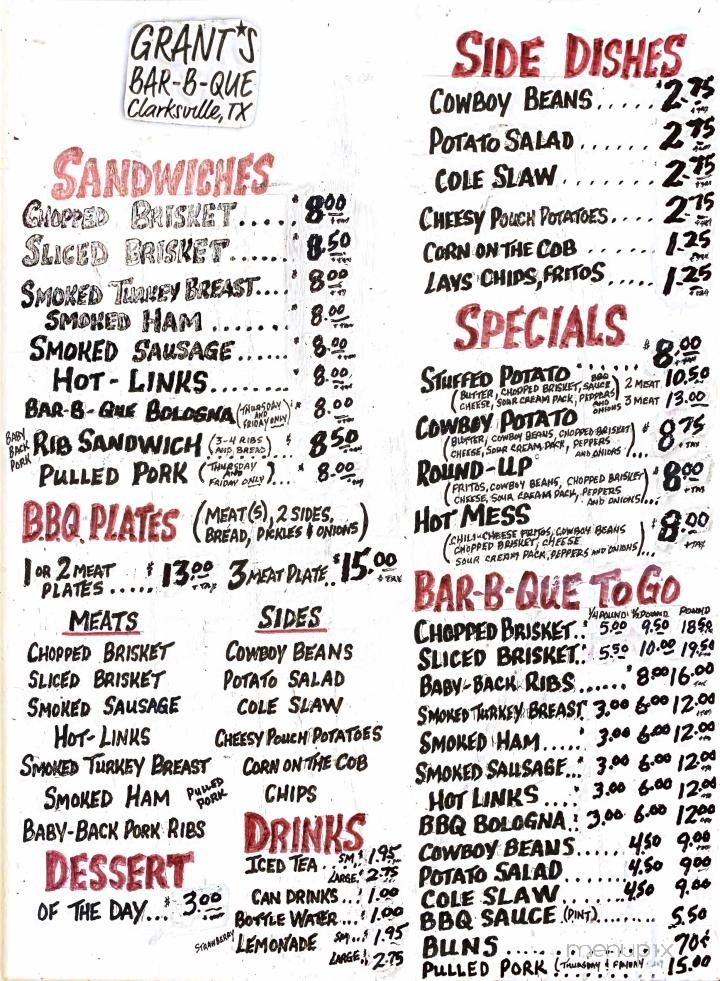 GRANT'S
BAR-B-QUE
Clarksville, TX
SANDWICHES
CHOPPED BRISKET..... $ 8.00 +TAX
SLICED BRISKET...... $ 8.50
SMOKED TURKEY BREAST.... $ 8.00 +TAX
SMOKED HAM ....... $ 8.00 +TAX
SMOKED SAUSAGE...... $ 8.00 +TAX
HOT-LINKS........ $ 8.00 +TAX
BAR-B-QUE BOLOGNA (THURSDAY AND FRIDAY ONLY) $ 8.00 +TAX
BABY BACK PORK RIB SANDWICH (3-4 RIBS AND BREAD) $ 8.50
PULLED PORK (THURSDAY AND FRIDAY ONLY) $ 8.00
BBQ PLATES (MEAT(S), 2 SIDES,
BREAD, PICKLES & ONIONS)
1 OR 2 MEAT
PLATES ..... $13.00 +TAX 3 MEAT PLATE $15.00 +TAX
MEATS
CHOPPED BRISKET
SLICED BRISKET
SMOKED SAUSAGE
HOT-LINKS
SMOKED TURKEY BREAST
SMOKED HAM PULLED PORK
BABY-BACK PORK RIBS
SIDES
COWBOY BEANS
POTATO SALAD
COLE SLAW
CHEESY POUCH POTATOES
CORN ON THE COB
CHIPS
DESSERT
OF THE DAY... $ 3.00
DRINKS
ICED TEA .. SM. $ 1.95
LARGE $ 2.75
CAN DRINKS... $ 1.00
BOTTLE WATER.. $ 1.00
STRAWBERRY LEMONADE SM... $ 1.95
LARGE $ 2.75
SIDE DISHES
COWBOY BEANS...... $2.75 +TAX
POTATO SALAD ...... 2.75
COLE SLAW ....... 2.75
CHEESY POUCH POTATOES.... 2.75
CORN ON THE COB ...... 1.25
LAYS CHIPS, FRITOS..... 1.25 +TAX
SPECIALS
STUFFED POTATO ...... $ 8.00 +TAX
(BUTTER, CHOPPED BRISKET, BBQ SAUCE 2 MEAT 10.50
CHEESE, SOUR CREAM PACK, PEPPERS AND ONIONS) 3 MEAT 13.00
COWBOY POTATO $ 8.75 +TAX
(BUTTER, COWBOY BEANS, CHOPPED BRISKET
CHEESE, SOUR CREAM PACK, PEPPERS
AND ONIONS)
ROUND-UP $ 8.00 +TAX
(FRITOS, COWBOY BEANS, CHOPPED BRISKET
CHEESE, SOUR CREAM PACK, PEPPERS
AND ONIONS)...
HOT MESS $ 8.00 +TAX
(CHILI-CHEESE FRITOS, COWBOY BEANS
CHOPPED BRISKET, CHEESE
SOUR CREAM PACK, PEPPERS AND ONIONS)...
BAR-B-QUE TO GO
1/4 POUND 1/2 POUND POUND
CHOPPED BRISKET.. $ 5.00 9.50 18.50
SLICED BRISKET.. 5.50 10.00 19.50
BABY-BACK RIBS...... $ 8.00 16.00
SMOKED TURKEY BREAST 3.00 6.00 12.00
SMOKED HAM..... 3.00 6.00 12.00
SMOKED SAUSAGE... 3.00 6.00 12.00
HOT LINKS .... 3.00 6.00 12.00
BBQ BOLOGNA.. 3.00 6.00 12.00
COWBOY BEANS...... 4.50 9.00
POTATO SALAD....... 4.50 9.00
COLE SLAW....... 4.50 9.00
BBQ SAUCE (PINT)........ 5.50
BUNS ............ 70¢
menupix
PULLED PORK (THURSDAY & FRIDAY ONLY) 15.00